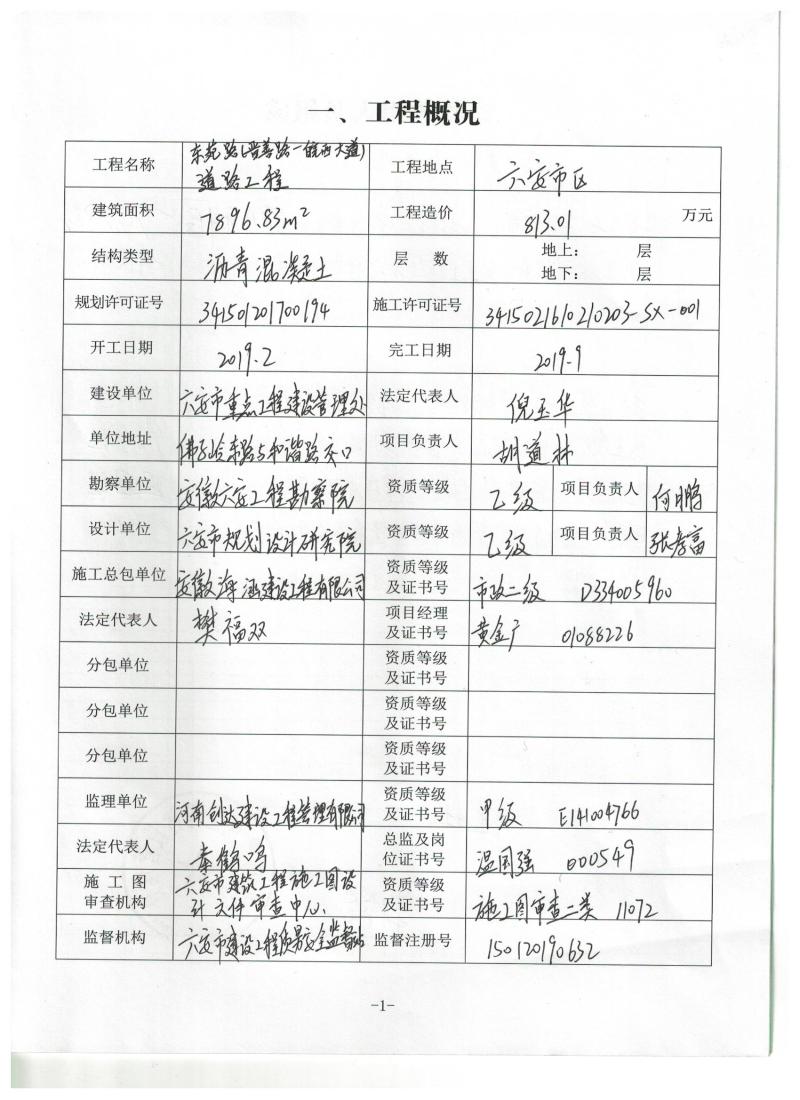 一、工程概况
工程名称 东苑路(磨善路-皖西大道)道路工程 工程地点 六安市区
建筑面积 7896.83m² 工程造价 813.01 万元
结构类型 沥青混凝土 层 数 地上: 层
地下: 层
规划许可证号 341501201700194 施工许可证号 3415021610210203-SX-001
开工日期 2019.2 完工日期 2019.9
建设单位 六安市重点工程建设管理处 法定代表人 倪玉华
单位地址 佛子岭东路与和谐路交口 项目负责人 胡道林
勘察单位 安徽六安工程勘察院 资质等级 乙级 项目负责人 何明鹏
设计单位 六安市规划设计研究院 资质等级 乙级 项目负责人 张孝富
施工总包单位 安徽海涵建设工程有限公司 资质等级及证书号 市政二级 D334005960
法定代表人 樊福双 项目经理及证书号 黄金广 01088226
分包单位 资质等级及证书号
分包单位 资质等级及证书号
分包单位 资质等级及证书号
监理单位 河南创达建设工程管理有限公司 资质等级及证书号 甲级 E141004766
法定代表人 鹤鸣 总监及岗位证书号 温国强 000549
施工图审查机构 六安市建筑工程施工图设计文件审查中心 资质等级及证书号 施工图审查二类 11072
监督机构 六安市建设工程质量安全监督站 监督注册号 150120190632
-1-